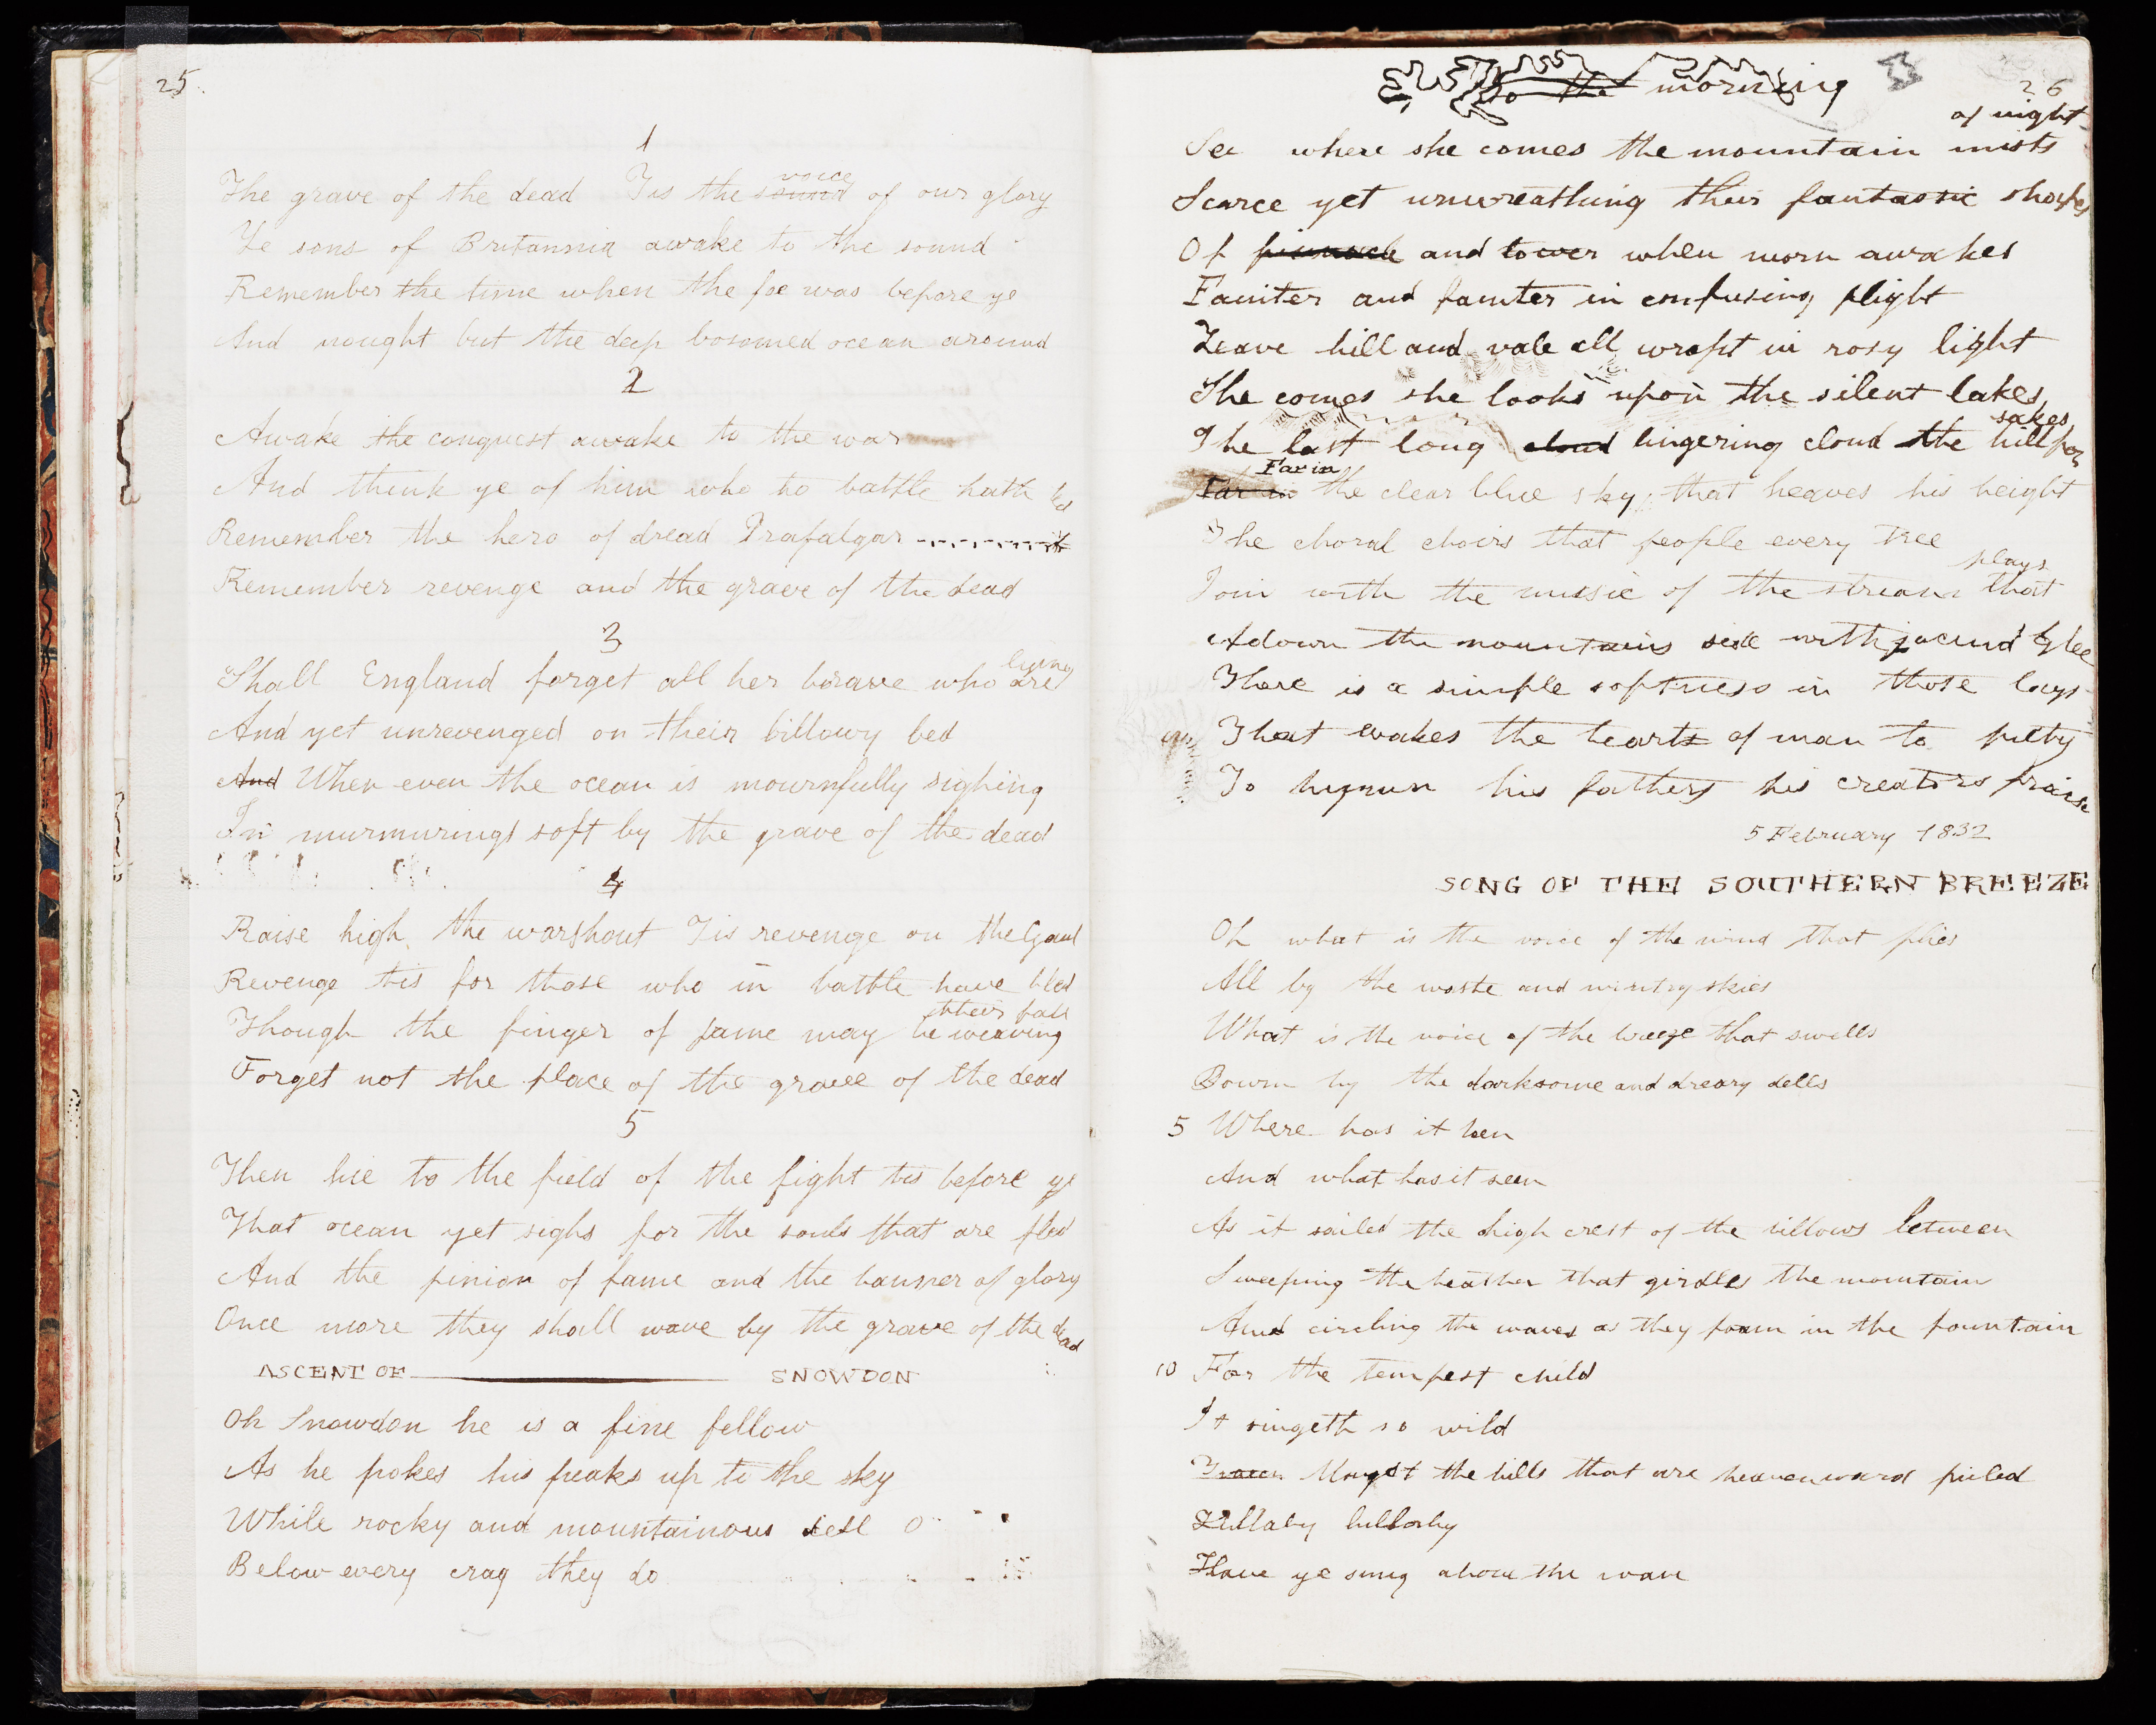 25
1
The grave of the dead Tis the sound voice of our glory
Ye sons of Britannia awake to the sound
Remember the time when the foe was before ye
And nought but the deep bosomed ocean around
2
Awake the conquest awake to the war
And think ye of him who to battle hath led
Remember the hero of dread Trafalgar
Remember revenge and the grave of the dead
3
Shall England forget all her brave who are lying
And yet unrevenged on their billowy bed
And When even the ocean is mournfully sighing
In murmurings soft by the grave of the dead
4
Raise high the warshout Tis revenge on the Gaul
Revenge tis for those who in battle have bled
Though the finger of fame may be weaving their fall
Forget not the place of the grave of the dead
5
Then hie to the field of the fight tis before ye
That ocean yet sighs for the souls that are fled
And the pinion of fame and the banner of glory
Once more they shall wave by the grave of the dead
ASCENT OF SNOWDON
Oh Snowdon he is a fine fellow
As he pokes his peaks up to the sky
While rocky and mountainous dell O
Below every crag they do
26
To the morning
See where she comes the mountain mists of night
Scarce yet unwreathing their fantastic shapes
Of pinnacle and tower when morn awakes
Fainter and fainter in confusing flight
Leave hill and vale all wrapt in rosy light
She comes she looks upon the silent lakes
The last long cloud lingering cloud the hill forsakes
Far in Far in the clear blue sky that heaves his height
The choral choirs that people every tree
Join with the music of the stream that plays
Adown the mountains side with jocund glee
There is a simple softness in those lays
That wakes the heart of man to piety
To hymn his fathers his creators praise
5 February 1832
SONG OF THE SOUTHERN BREEZE
Oh what is the voice of the wind that flies
All by the waste and wintry skies
What is the voice of the breeze that swells
Down by the darksome and dreary dells
5 Where has it been
And what has it seen
As it sailed the high crest of the billows between
Sweeping the heather that girdles the mountain
And circling the waves as they foam in the fountain
10 For the tempest child
It singeth so wild
Mongst the hills that are heavenward piled
Lullaby lullaby
Have ye sung above the wave